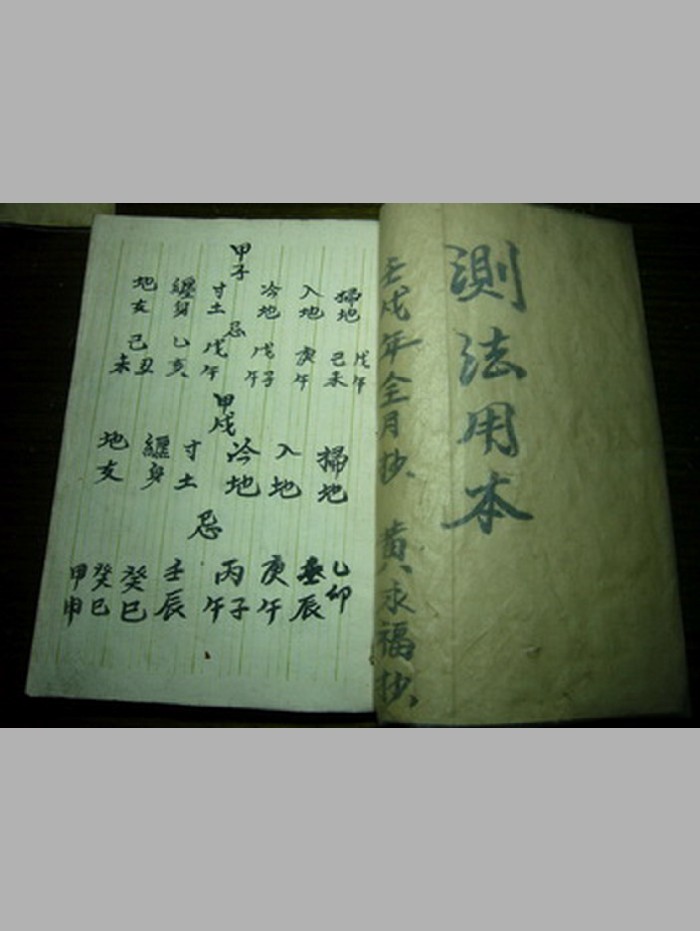 測法用本
壬戌年全月抄、黄永福抄、
甲子
掃地 入地 冷地 寸土 纏身 地亥
忌
戊午 己未 庚午 戊子午 戊午 乙亥 己丑未
甲戌
掃地 入地 冷地 寸土 纏身 地亥
忌
乙卯 壬辰 庚午 丙子午 壬辰 癸巳 癸巳 甲申